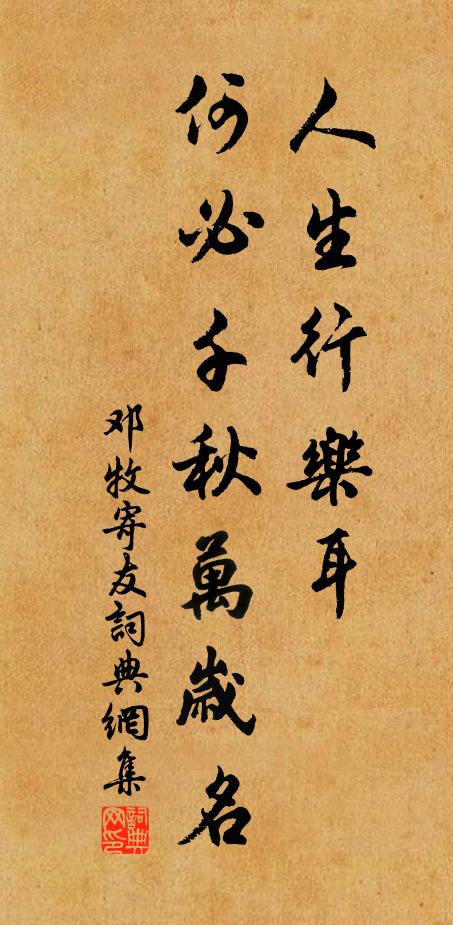 人生行樂耳
何必千秋萬歲名
邓牧寄友詞典網集
詞典网印